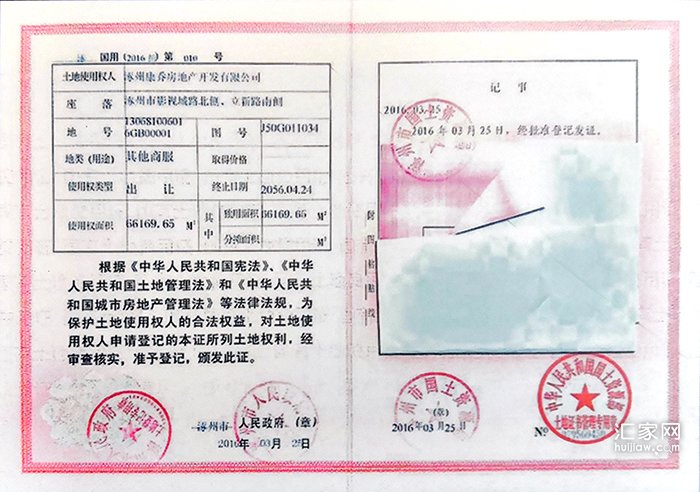 涿 国用（2016）第 010 号
土地使用权人 涿州康乔房地产开发有限公司
座 落 涿州市影视城路北侧、立新路南侧
地 号 13068100601
6GB00001
图 号 J50G011034
地类（用途） 其他商服 取得价格
使用权类型 出 让 终止日期 2056.04.24
使用权面积 66169.65 M²
其中 独用面积 66169.65 M²
分摊面积 M²
根据《中华人民共和国宪法》、《中华
人民共和国土地管理法》和《中华人民共
和国城市房地产管理法》等法律法规，为
保护土地使用权人的合法权益，对土地使
用权人申请登记的本证所列土地权利，经
审查核实，准予登记，颁发此证。
涿州市 人民政府（章）
2016年 03月 25日
记 事
2016.03.25
2016年03月25日，经批准登记发证。
涿州市国土资
附图粘贴线
涿州市国土资
（章）
2016年03月25日
中华人民共和国国土资源部
土地证书管理专用章
№
汇家网
huijiaw.com